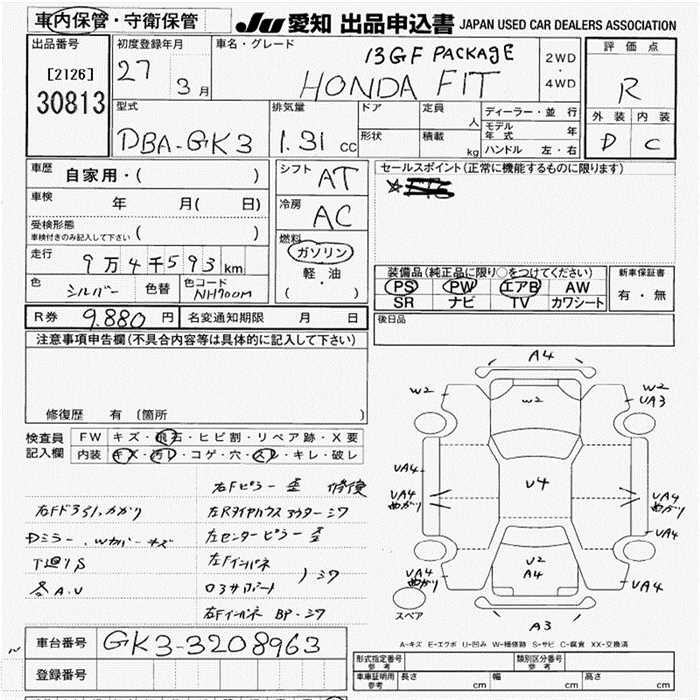 車内保管・守衛保管
JU 愛知 出品申込書 JAPAN USED CAR DEALERS ASSOCIATION
出品番号
[2126]
30813
初度登録年月
27 3月
車名・グレード
13GF PACKAGE
HONDA FIT
2WD
・
4WD
評価点
R
外装 内装
D C
型式
DBA-GK3
排気量
1.31 cc
ドア
形状
定員 人
積載 kg
ディーラー・並行
モデル年式 年
ハンドル 左・右
車歴 自家用・( )
車検 年 月( 日)
受検形態
車検付きのみ記入して下さい ( )
走行 9万4千593km
色 シルバー 色替 色コード NH700M
シフト AT
冷房 AC
燃料
ガソリン
軽・油
( )
セールスポイント(正常に機能するものに限ります)
装備品(純正品に限り○をつけてください)
PS PW エアB AW
SR ナビ TV カワシート
新車保証書
有・無
R券 9.880円 名変通知期限 月 日
後日品
注意事項申告欄(不具合内容等は具体的に記入して下さい)
修復歴 有 〔箇所 〕
検査員記入欄
FW キズ・飛石・ヒビ割・リペア跡・X要
内装 キズ・汚レ・コゲ・穴・スレ・キレ・破レ
右Fピラー 歪 修復
左Rタイヤハウス アウター シワ
Dミラー、Wカバー キズ
左センターピラー 歪
左Fインパネ
シワ
各A.U
左Fインパネ BP.シワ
A4
W2
W2
W2
UA3
UA4
UA4
曲がり
U4
UA4
曲がり
UA4
UA4
曲がり
U2
A4
UA4
スペア
A3
A-キズ E-エクボ U-凹み W-補修跡 S-サビ C-腐食 XX-交換済
車台番号 GK3-3208963
登録番号
形式指定番号 参考
類別区分番号 参考
車庫証明用 参考 長さ cm 幅 cm 高さ cm